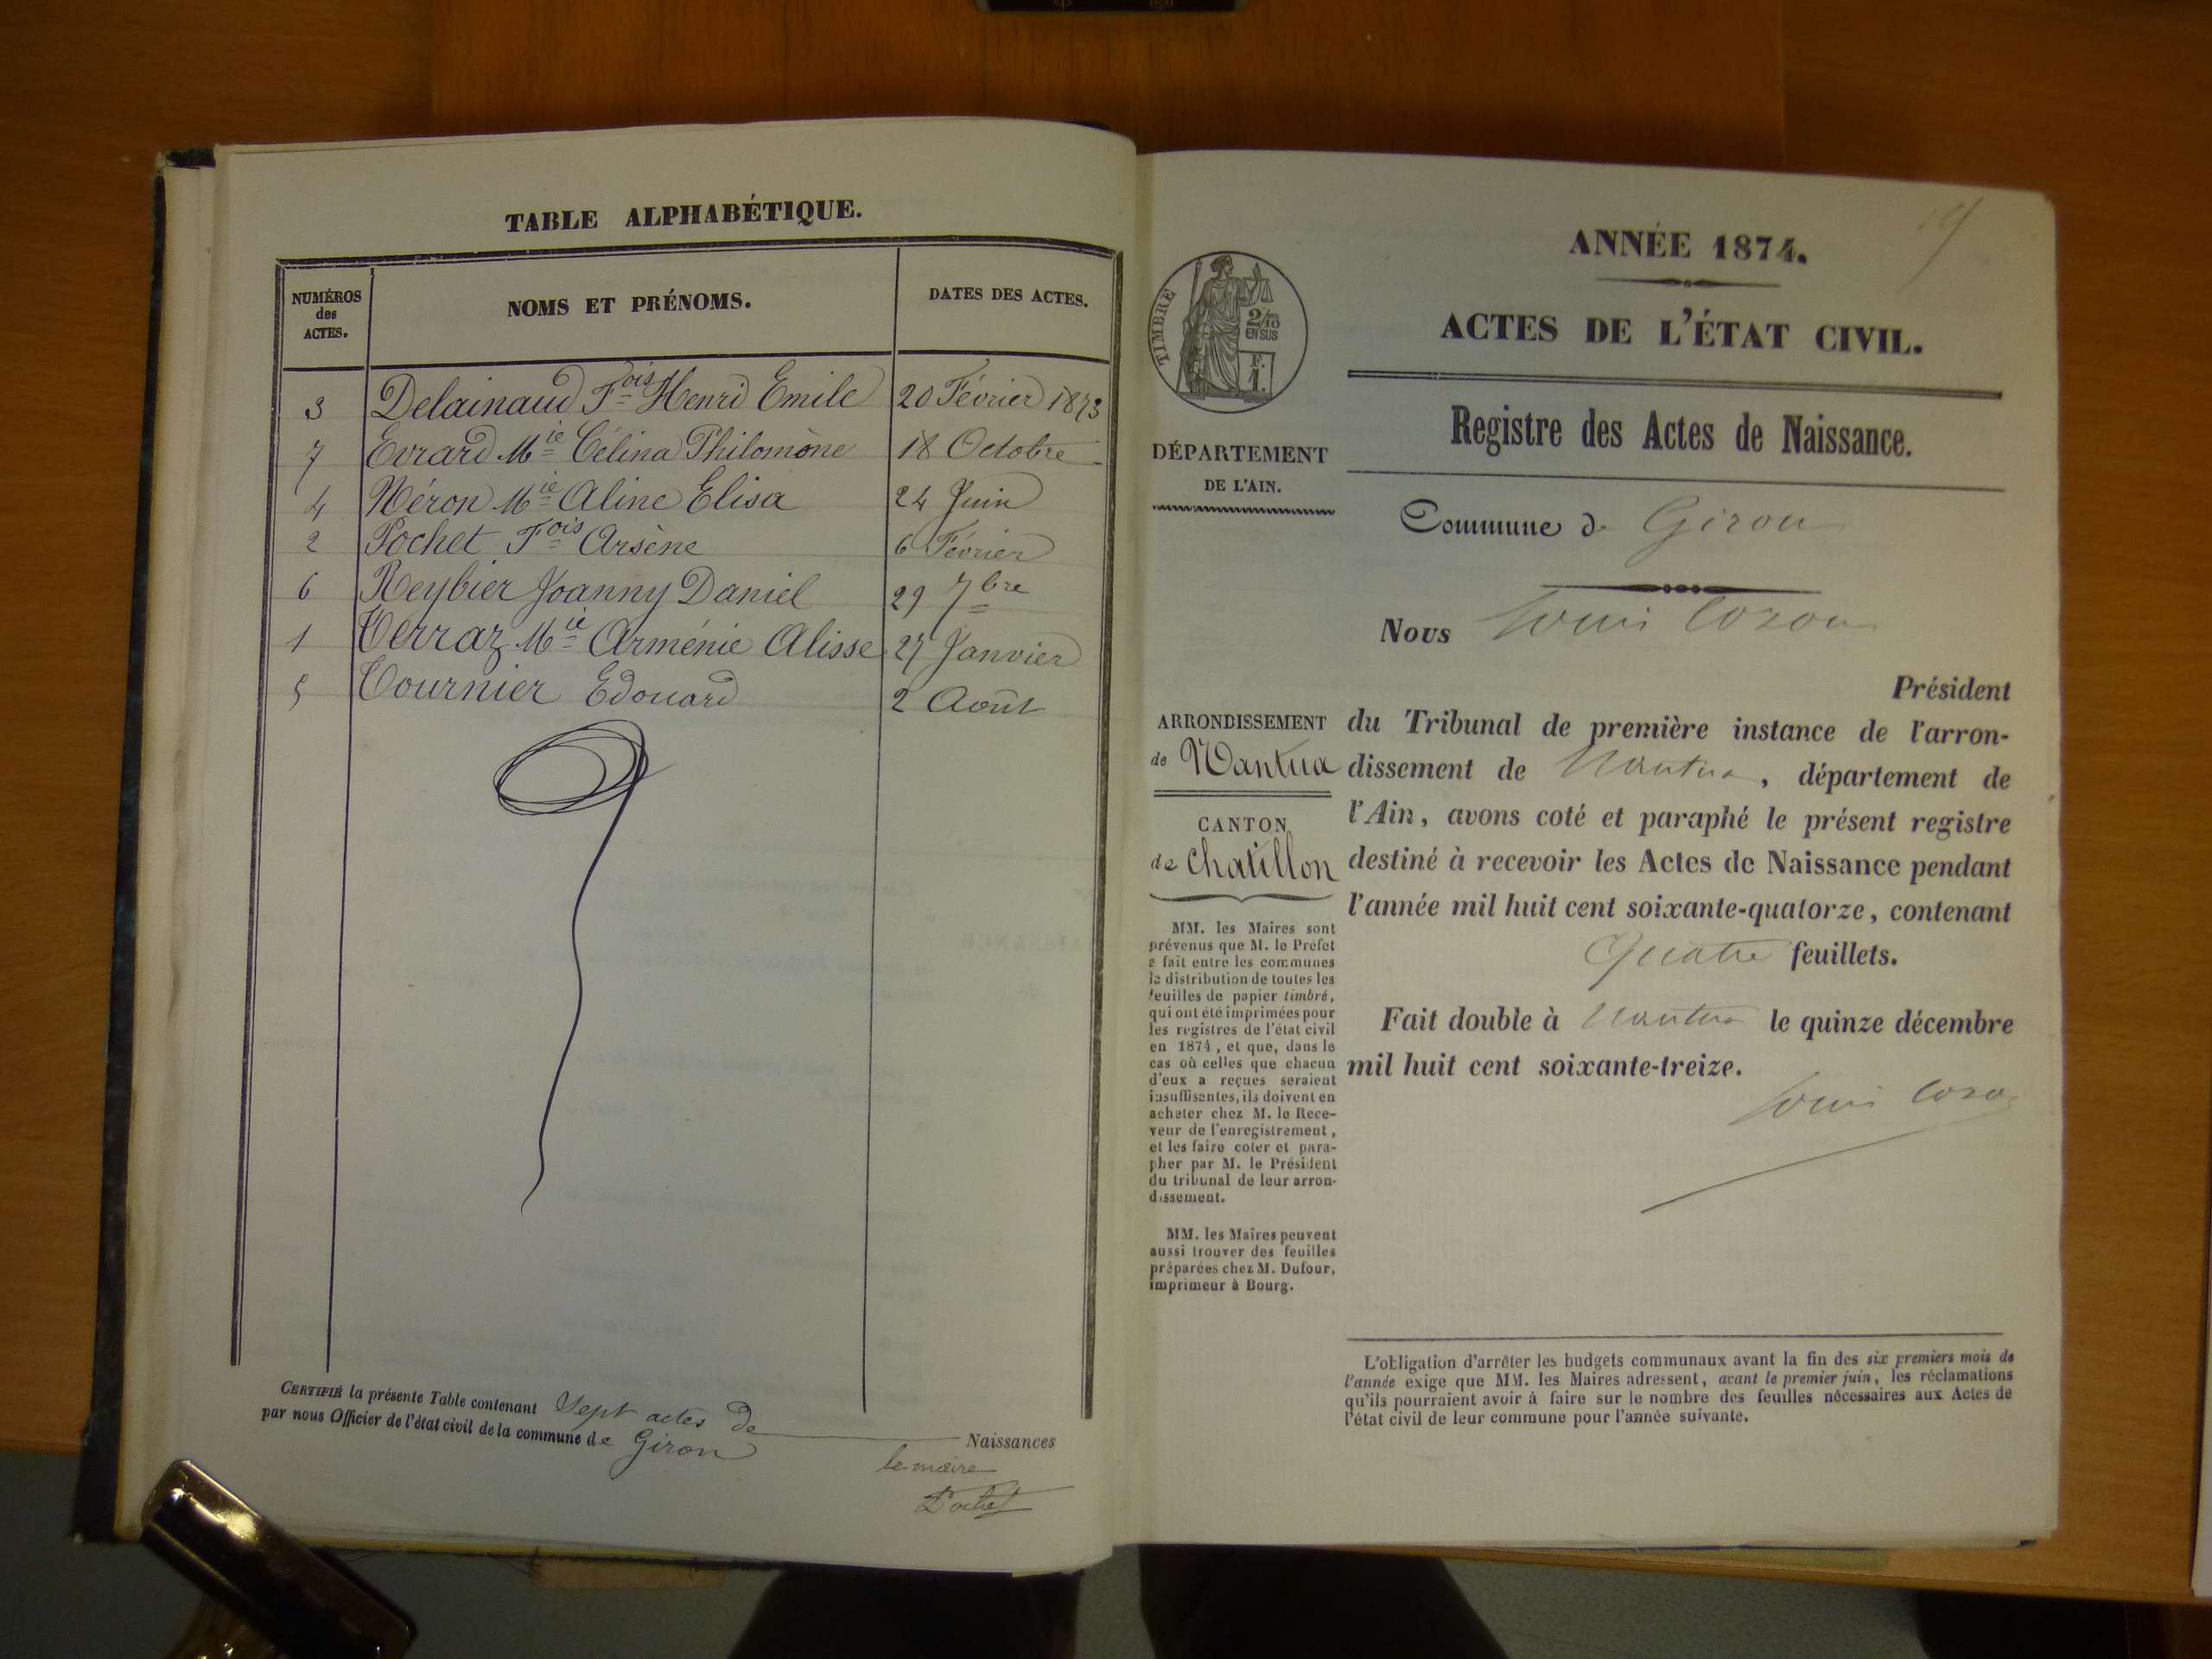 TABLE ALPHABÉTIQUE.
NUMÉROS des ACTES.
NOMS ET PRÉNOMS.
DATES DES ACTES.
3 Delainaud Fois Henri Emile 20 Février 1873
7 Evrard Mie Célina Philomène 18 Octobre
4 Néron Mie Aline Elisa 24 Juin
2 Pochet Fois Arsène 6 Février
6 Reybier Joanny Daniel 29 7bre
1 Terraz Mie Arménie Alisse 27 Janvier
5 Tournier Edouard 2 Août
CERTIFIÉ la présente Table contenant Sept actes de Naissances
par nous Officier de l'état civil de la commune de Giron
le maire
Pochet
19
ANNÉE 1874.
ACTES DE L'ÉTAT CIVIL.
TIMBRE
2/10
EN SUS
F.
1.
DÉPARTEMENT
DE L'AIN.
Registre des Actes de Naissance.
Commune de Giron
Nous Louis Cozon
Président
du Tribunal de première instance de l'arron-
dissement de Nantua, département de
l'Ain, avons coté et paraphé le présent registre
destiné à recevoir les Actes de Naissance pendant
l'année mil huit cent soixante-quatorze, contenant
Quatre feuillets.
Fait double à Nantua le quinze décembre
mil huit cent soixante-treize.
Louis Cozon
ARRONDISSEMENT
de Nantua
CANTON
de Chatillon
MM. les Maires sont
prévenus que M. le Préfet
a fait entre les communes
la distribution de toutes les
feuilles de papier timbré,
qui ont été imprimées pour
les registres de l'état civil
en 1874, et que, dans le
cas où celles que chacun
d'eux a reçues seraient
insuffisantes, ils doivent en
acheter chez M. le Rece-
veur de l'enregistrement,
et les faire coter et para-
pher par M. le Président
du tribunal de leur arron-
dissement.
MM. les Maires peuvent
aussi trouver des feuilles
préparées chez M. Dufour,
imprimeur à Bourg.
L'obligation d'arrêter les budgets communaux avant la fin des six premiers mois de
l'année exige que MM. les Maires adressent, avant le premier juin, les réclamations
qu'ils pourraient avoir à faire sur le nombre des feuilles nécessaires aux Actes de
l'état civil de leur commune pour l'année suivante.